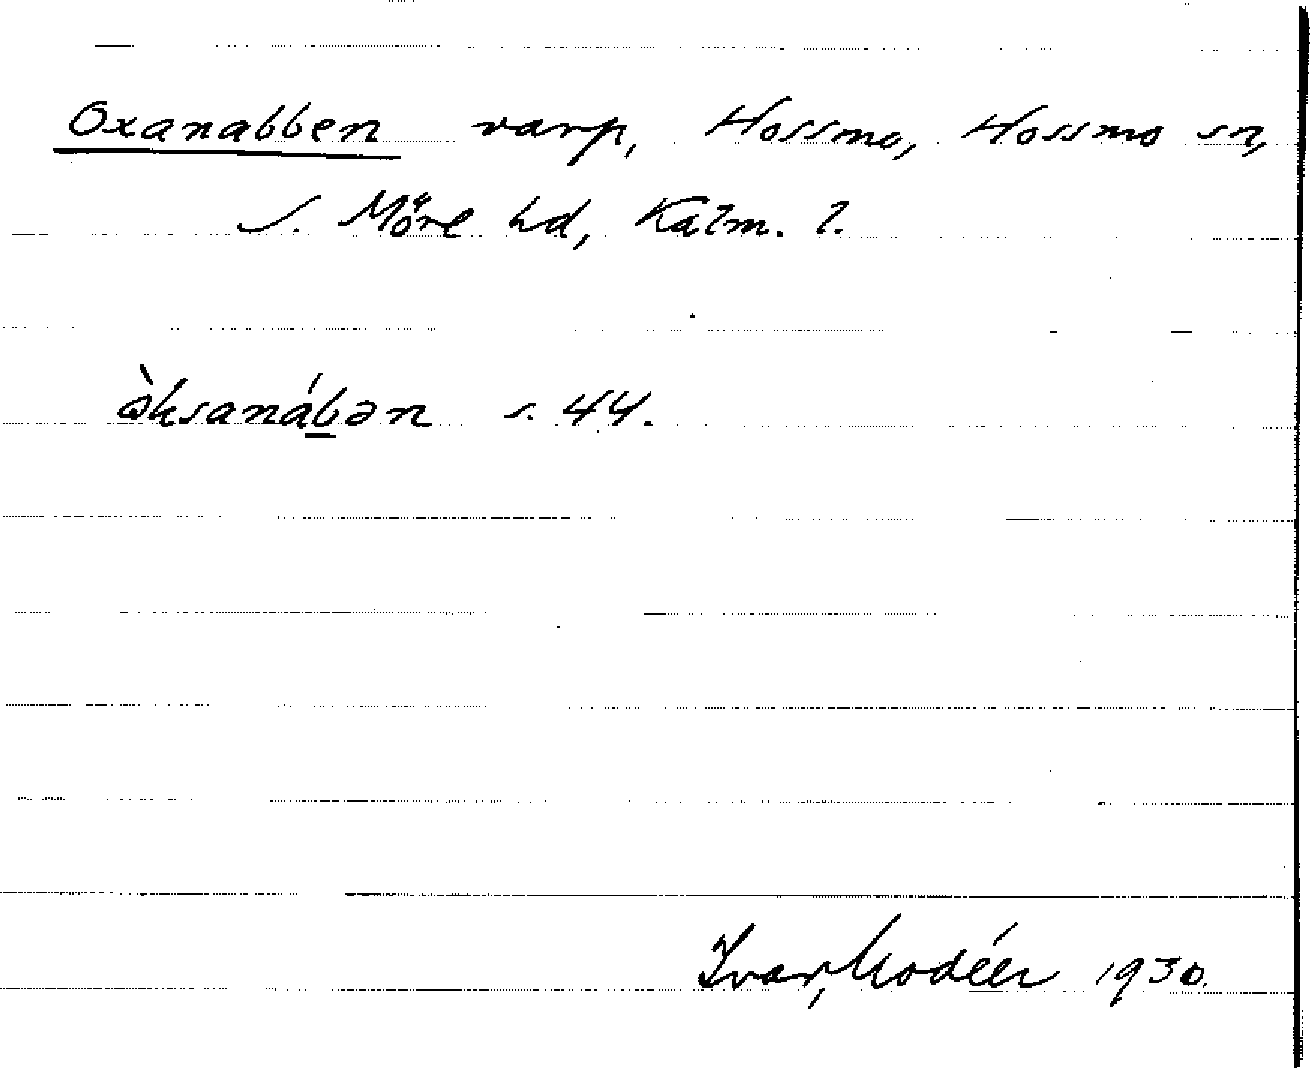 Oxanabben varp, Hossmo, Hossmo sn,
S. Möre hd, Kalm. l.
òksanáb̲ən s. 44.
Ivar Modéer 1930.